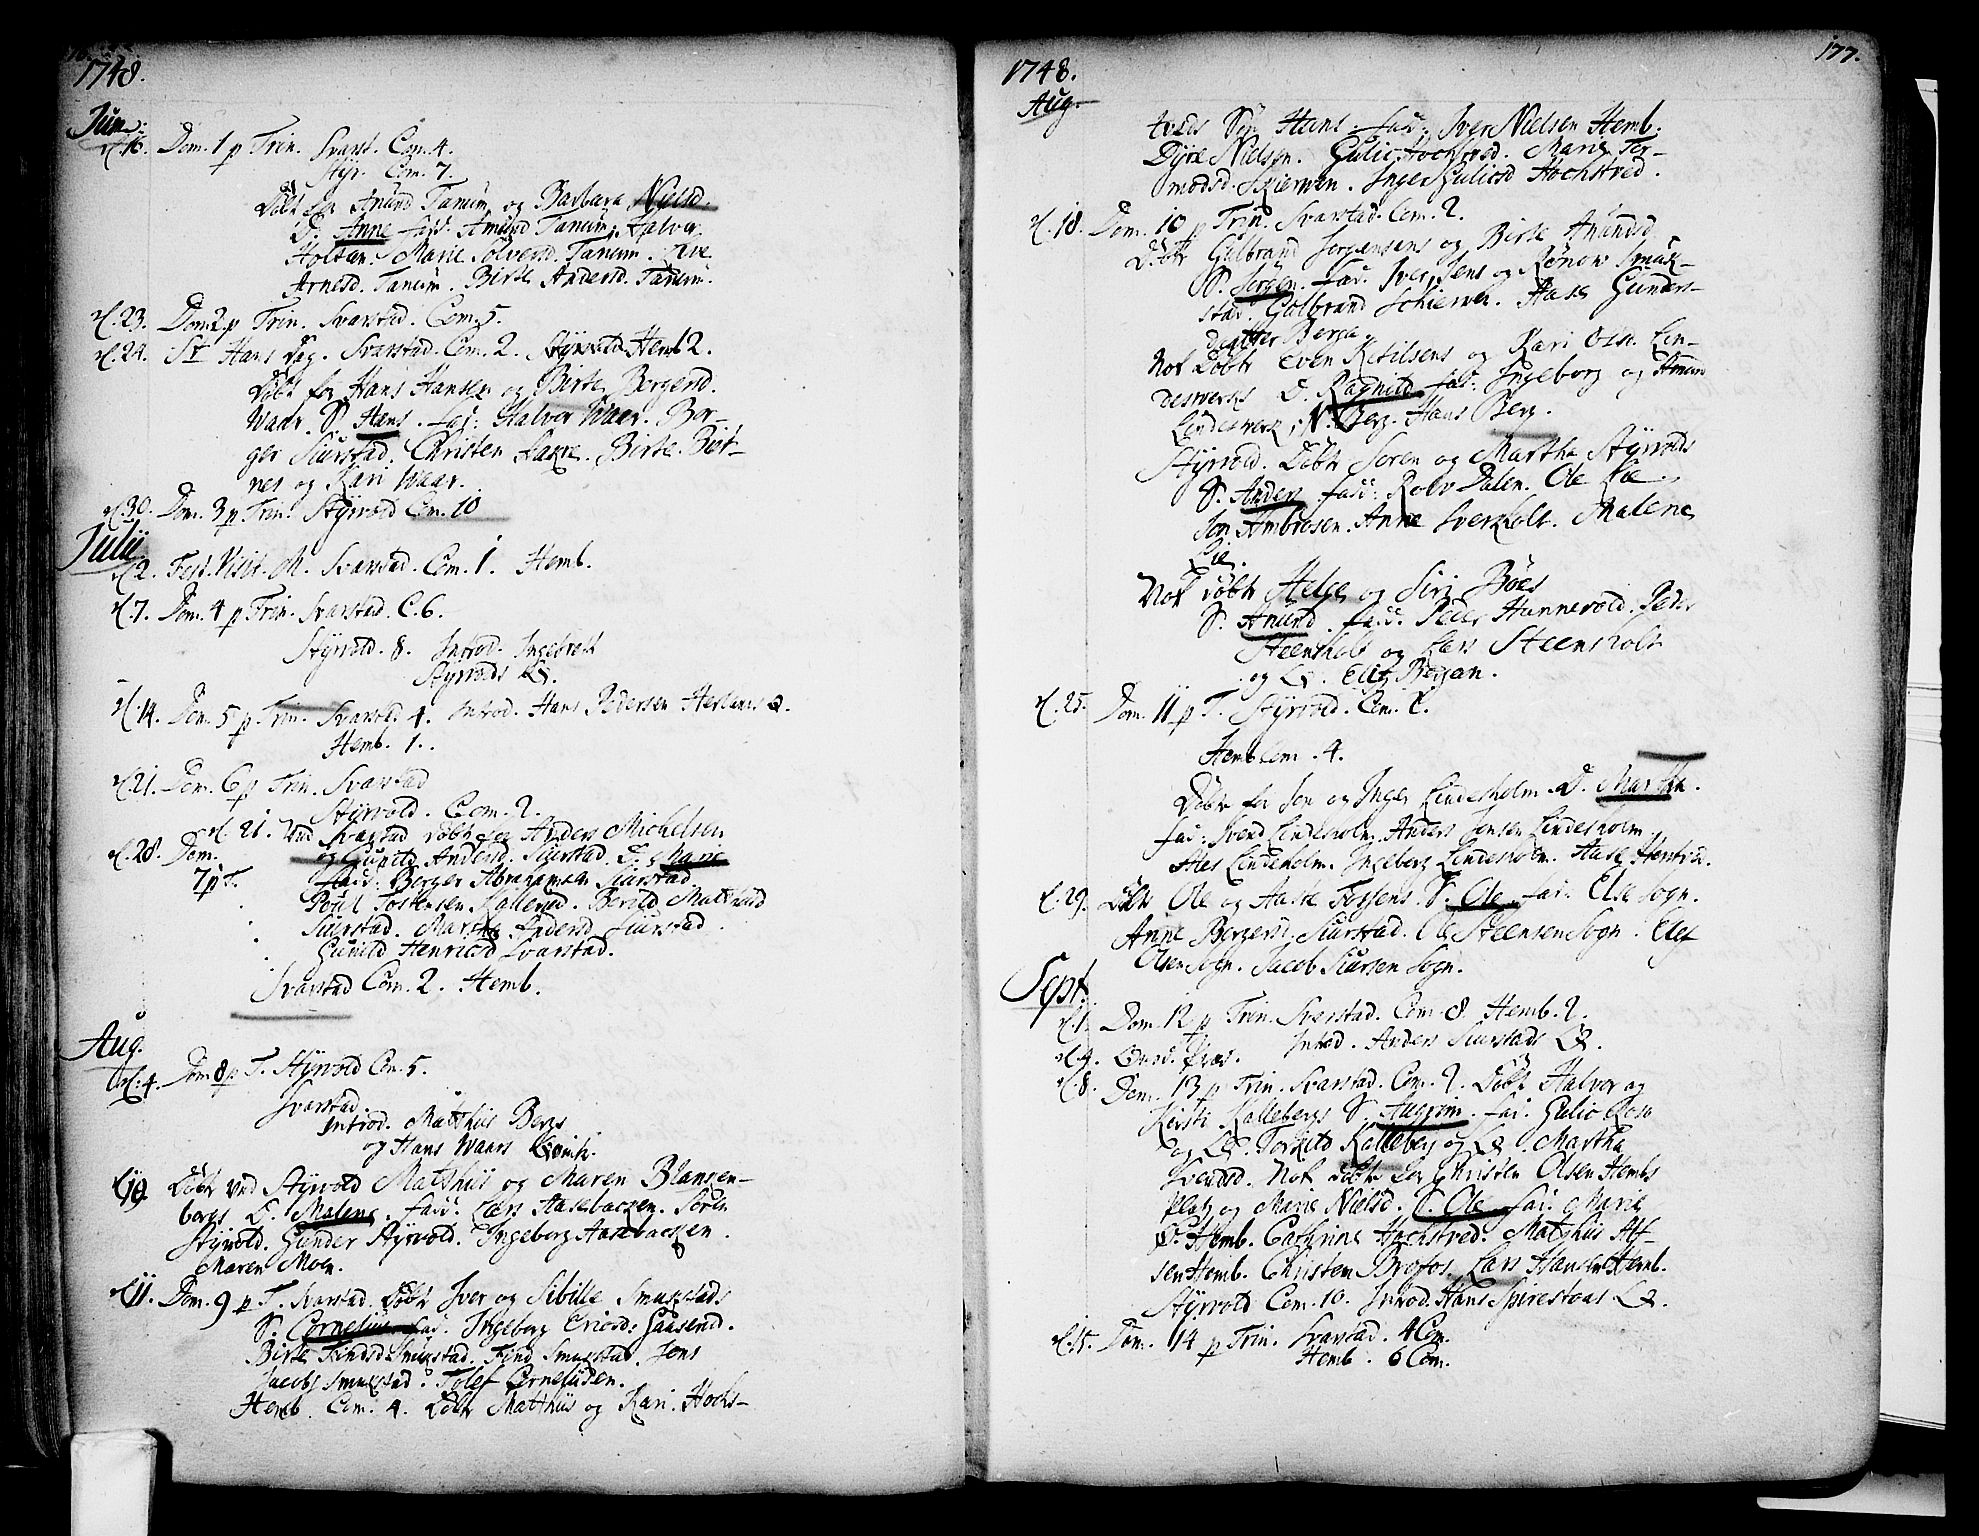 1748.
Jun:
d. 16. Dom. 1 p Trin. Svarst. Com. 4.
Styr. Com. 7.
Døbt for Anund Tanum og Barbara Nyled.
D. Anne fad: Amund Tanum. Halvor
Holtan. Marie Solversd. Tanum.
Arnesd. Tanum. Birte Andersd. Tanum.
d. 23. Dom. 2 p Trin. Svarstad. Com. 5.
d. 24. St Hans Dag. Svarstad. Com. 2. Styrvold Hemb 2.
Døbt for Hans Hansen og Birte Borgersd.
Waar. S. Hans. fad: Halvor Waar. Bor-
ger Siurstad. Christen Birte Biot-
nes og Kari Waar.
d. 30. Dom. 3 p Trin. Styrvold Com. 10
Julii
d. 2. Fest. Visit. M. Svarstad. Com. 1. Hemb.
d. 7. Dom. 4 p Trin. Svarstad. C. 6.
Styrvold. 8. Introd. Ingebrett
Styrvolds Q.
d. 14. Dom. 5 p Trin. Svarstad 4. Introd. Hans Pedersen Q.
Hemb. 1.
d. 21. Dom. 6 p Trin. Svarstad
Styrvold. Com. 2.
d. 21. Ved Svarstad døbt for Anders Michelsen
d. 28. Dom. og Gunild Andersd. Siurstad. D. Marie
7 p T. fad: Borger Abrahamsen Siurstad
Poul Tostensen Kallerud. Berild
Siurstad. Martha Andersd Siurstad
Gunild Henricsd Svarstad.
Svarstad Com. 2. Hemb.
Aug.
d. 4. Dom 8 p T. Styrvold Com. 5.
Svarstad.
Introd. Matthiis Bergs
og Hans Waars
d. 10 Døbt ved Styrvold Matthiis og Maren Blansen-
bergs D. Malene. fad: Lars Aasebacken. Søren
Styrvold. Gunder Styrvold. Ingeborg Aasebacken.
Maren Moen.
d. 11. Dom. 9 p T. Svarstad. Døbt Iver og Sibille Smukstads
S. Cornelius. fad. Ingeborg Ericsd: Gaaserud.
Birte Findsd Smukstad. Find Smukstad. Jens
Jacobs Smukstad. Tolef Corneliusen.
Hemb. Com. 4. Døbt Matthiis og Kari Hochs-
1748. 177.
Aug.
tveds Søn Hans. fad: Iver Nielsen Hemb.
Dyre Nielsen. Gulic Hochstved. Marie Tor-
modsd. Skierven. Inger Gulicsd Hochstved.
d. 18. Dom. 10 p Trin. Svarstad. Com. 2.
Døbt Gulbrand Jorgensens og Birte Anundsd
S. Jorgen. fad: Iver Jens og Ronow Smuk-
stad. Gulbrand Schierven. Aase Gunders-
datter Berga.
Nok Døbt Even Ketilsens og Kari Olsd. Lin-
desverks D. Ragnild fad: Ingeborg og Amun
Lindesverk; N. Berg. Hans Berg.
Styrvold. Døbt Soren og Martha Styrvolds
S. Anders. fad: Rolv Dalen. Ole Lie.
Jon Ambrosen. Anne Sverkholt. Malene
Lie.
Nok døbt Helge og Siri Bøes
S. Anund. fad: Peder Hannevold. Peder
Steensholt og Lars Steensholt
og Q. Elie Bergan.
d. 25. Dom. 11 p T. Styrvold. Com. 2.
Hemb Com. 4.
Døbt for Jon og Inge Lindesholm. D. Martha.
fad: Svend Lindeholm. Anders Jonsen Lindesholm.
Lindeholm. Ingeborg Lindesholm. Aase Henricsd.
d. 29. Døbt Ole og Aaste Fossens. S. Ole. fad: Else Sogn.
Anne Borgersd. Siurstad. Ole Steensen Sogn. Elef
Olsen Sogn. Jacob Siursen Sogn.
Sept
d. 1. Dom. 12 p Trin. Svarstad. Com. 8 Hemb. 2.
Introd. Anders Siurstads Q.
d. 4.
d. 8. Dom. 13 p Trin. Svarstad. Com. 2. Døbt Halvor og
Kirsti Kallebergs S. fad: Gulic
og Q. Torkild Kalleberg og Q. Martha
Svendsd. Nok døbt for Christen Olsen Hembs
Plats og Marie Nielsd. S. Ole. fad: Marie
Hemb. Cathrine Hochstved. Matthiis Alf-
sen Hemb. Christen Brofos. Lars Hansen Hemb.
Styrvold Com. 10. Introd. Hans Q.
d. 15. Dom. 14 p Trin. Svarstad. 4 Com.
Hemb. 6 Com.